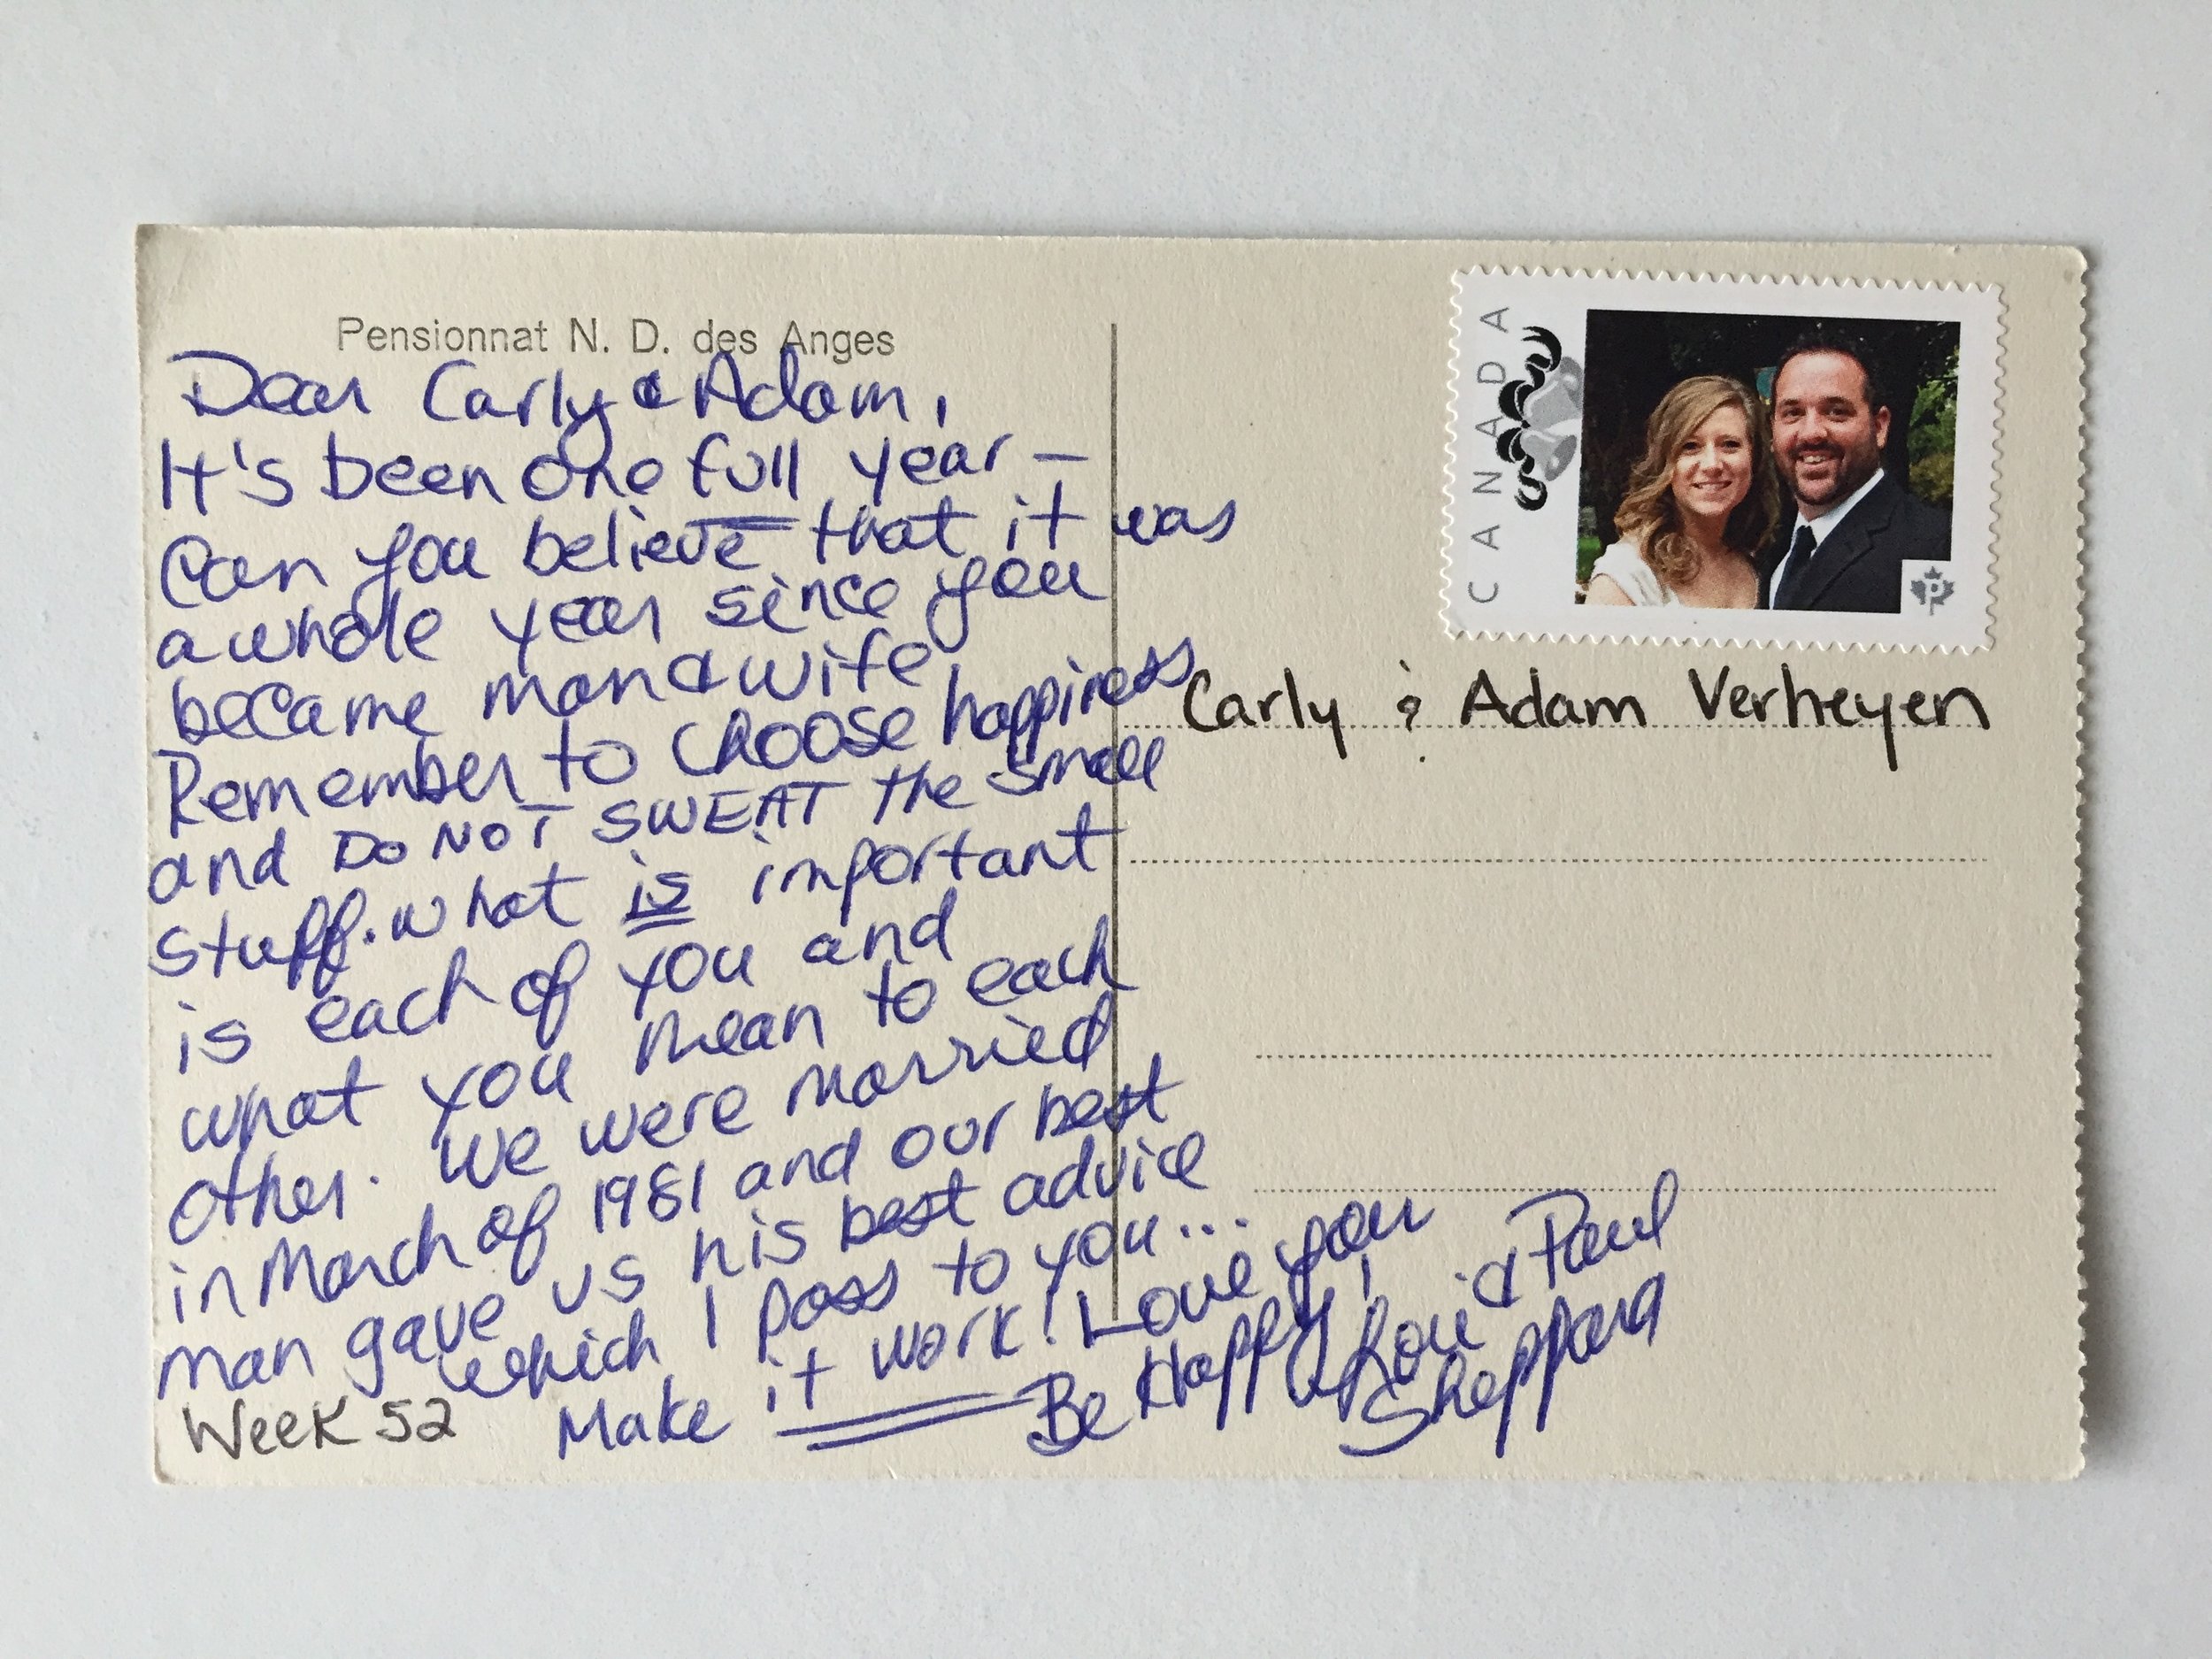 Pensionnat N. D. des Anges
Dear Carly & Adam,
It's been one full year –
Can you believe that it was
a whole year since you
became man & wife
Remember to CHOOSE happiness
and DO NOT SWEAT the small
stuff. What is important
is each of you and
what you mean to each
other. We were married
in March of 1981 and our best
man gave us his best advice
which I pass to you...
Make it work! Love you
Be Happy! Lori & Paul
Sheppard
Week 52
CANADA
P
Carly & Adam Verheyen